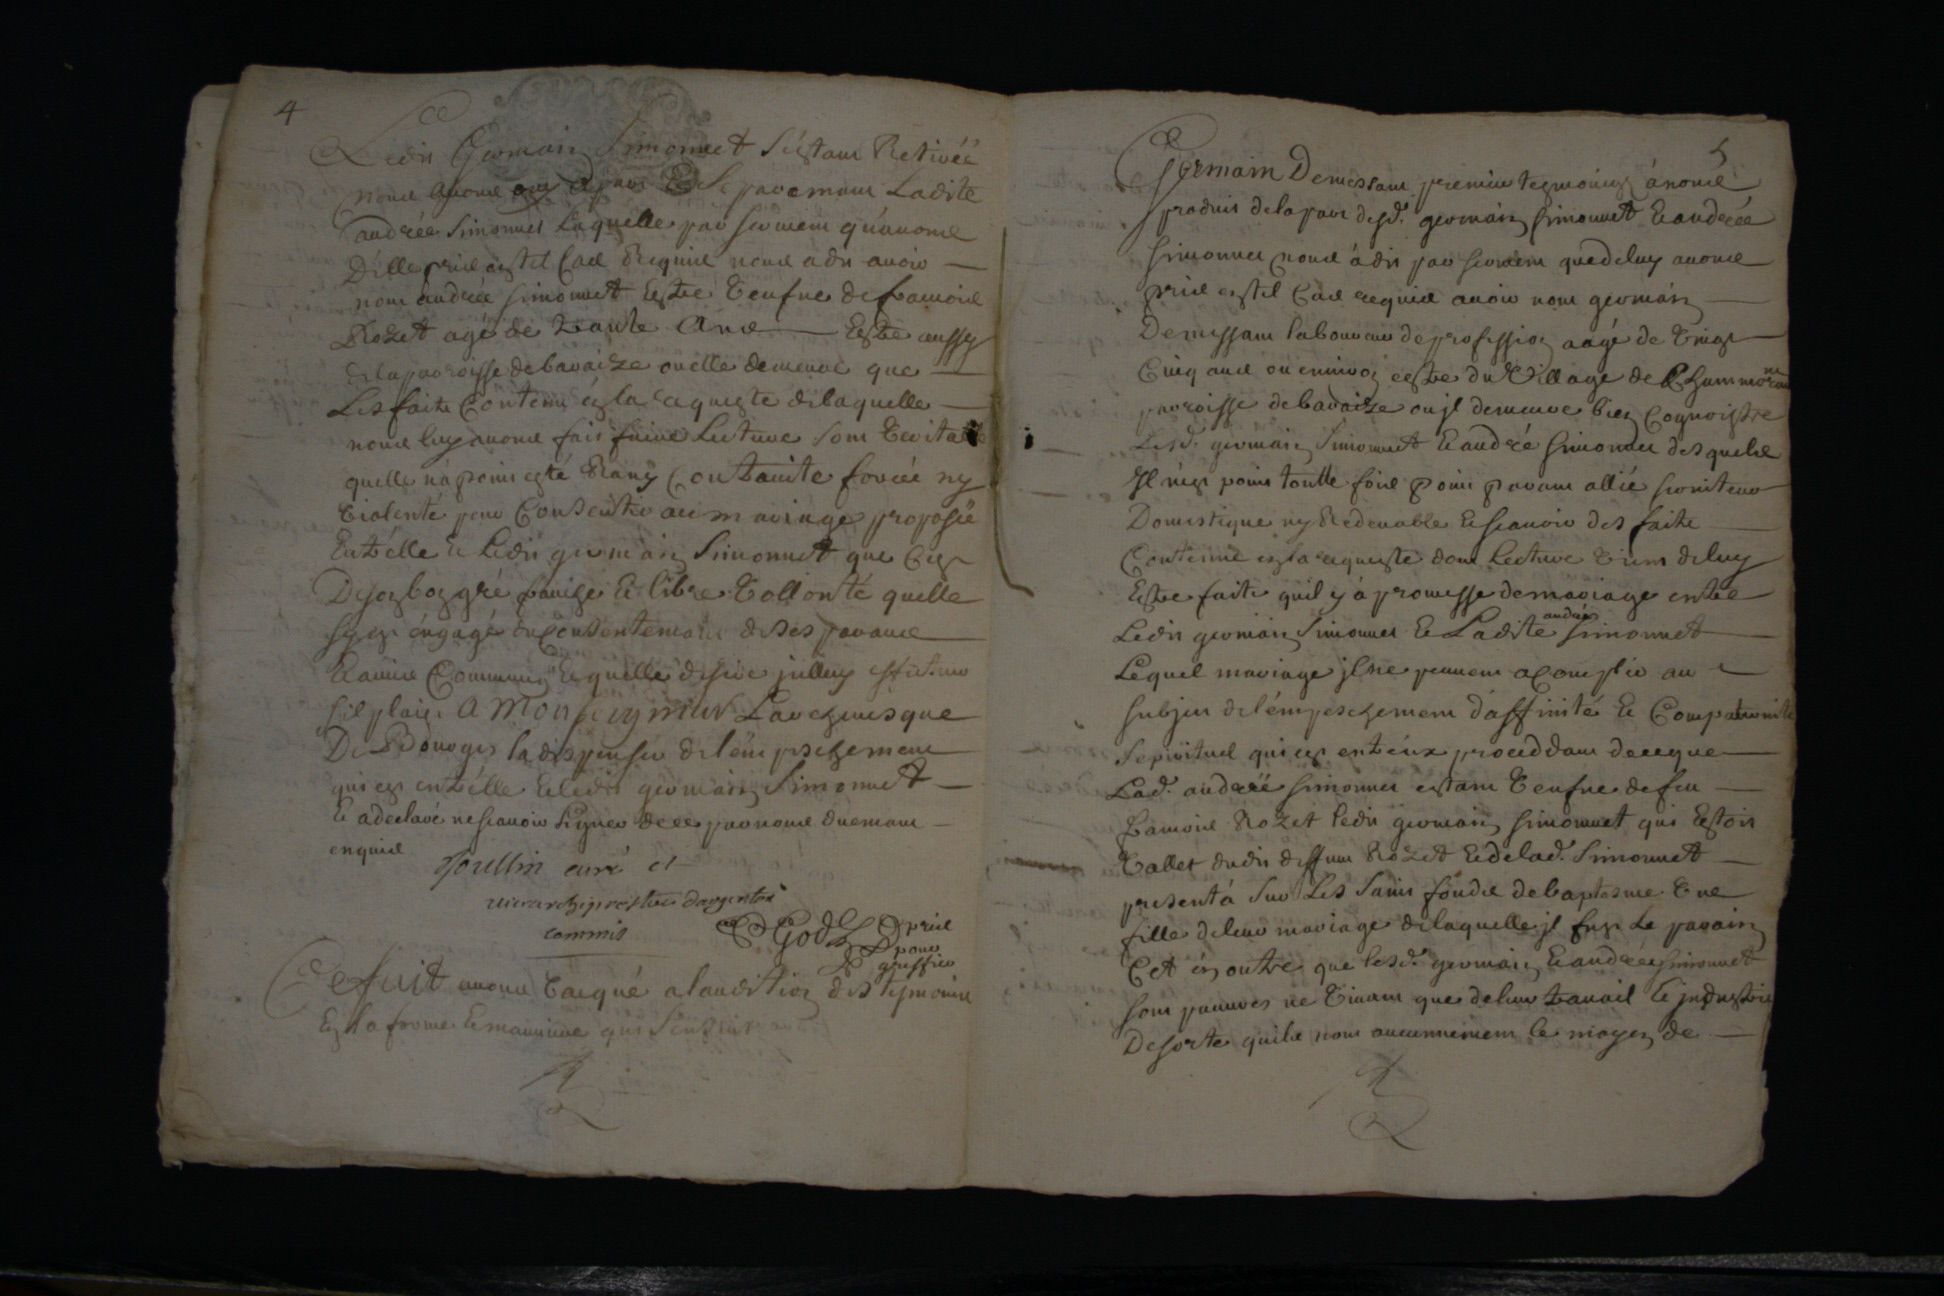 4
Ledit Germain Simonnet s'estant Retirée
nous avons ouy apart & separemant Ladite
andrée simonnet Laquelle par serment qu'avons
D'elle pris en tel Cas Requis nous a dit avoir
nom andrée simonnet Estre veufve de francois
Rozet agé de trante Ans Estre aussy
en la parroisse de bavaize ou elle demeure que
Les faits Contenu en la requeste de laquelle
nous luy avons fait faire Lecture sont veritable
quelle n'a point esté Ravy Contrainte forcée ny
violenté pour Consentir au mariage proposé
Entr'elle & Ledit germain Simonnet que C'est
De son bon gré franche & libre vollonté quelle
s'y est engagé du Consentement de ses parans
& amis Communs & quelle desire
s'il plaist A Monseigneur L'archevesque
De Bourges la dispenser de l'empeschement
qui est entr'elle & ledit germain Simonnet
& a declaré ne scavoir signer de ce par nous duemant
enquise
curé et
vicearchipretre d'argenton
commis
pris
pour
greffier
Ce fait avons vacqué a l'audition des tesmoins
En la forme & maniere qui s'ensuit
5
Germain Demessant premier tesmoin a nous
produit de la part desd. germain simonnet & andrée
simonnet nous a dit par serment que de luy avons
pris en tel Cas requis avoir nom germain
Demessant laboureur de profession aagé de vingt
Cinq ans ou environ estre du village de
parroisse de bavaize ou il demeure bien Cognoistre
Lesd. germain Simonnet & andrée simonnet desquels
Il n'est point touttes fois point parant allié serviteur
Domestique ny Redevable & scavoir des faits
Contenus en la requeste dont Lecture vient de luy
Estre faite quil y a promesse de mariage entre
Ledit germain Simonnet & Ladite andrée simonnet
Lequel mariage ils ne peuvent acomplir au
subjet de l'empeschement d'affinité & Compaternité
spirituel qui est entr'eux proceddant de ce que
Lad. andrée simonnet estant veufve de feu
francois Rozet ledit germain simonnet qui Estoit
vallet dudit deffunt Rozet & de lad. Simonnet
presenta sur Les saint fonds de baptesme une
fille de leur mariage de laquelle il fust Le parain
Et en outre que lesd. germain & andrée simonnet
sont pauvres ne vivant que de leur travail & industrie
De sorte quils n'ont aucunnement le moyen de